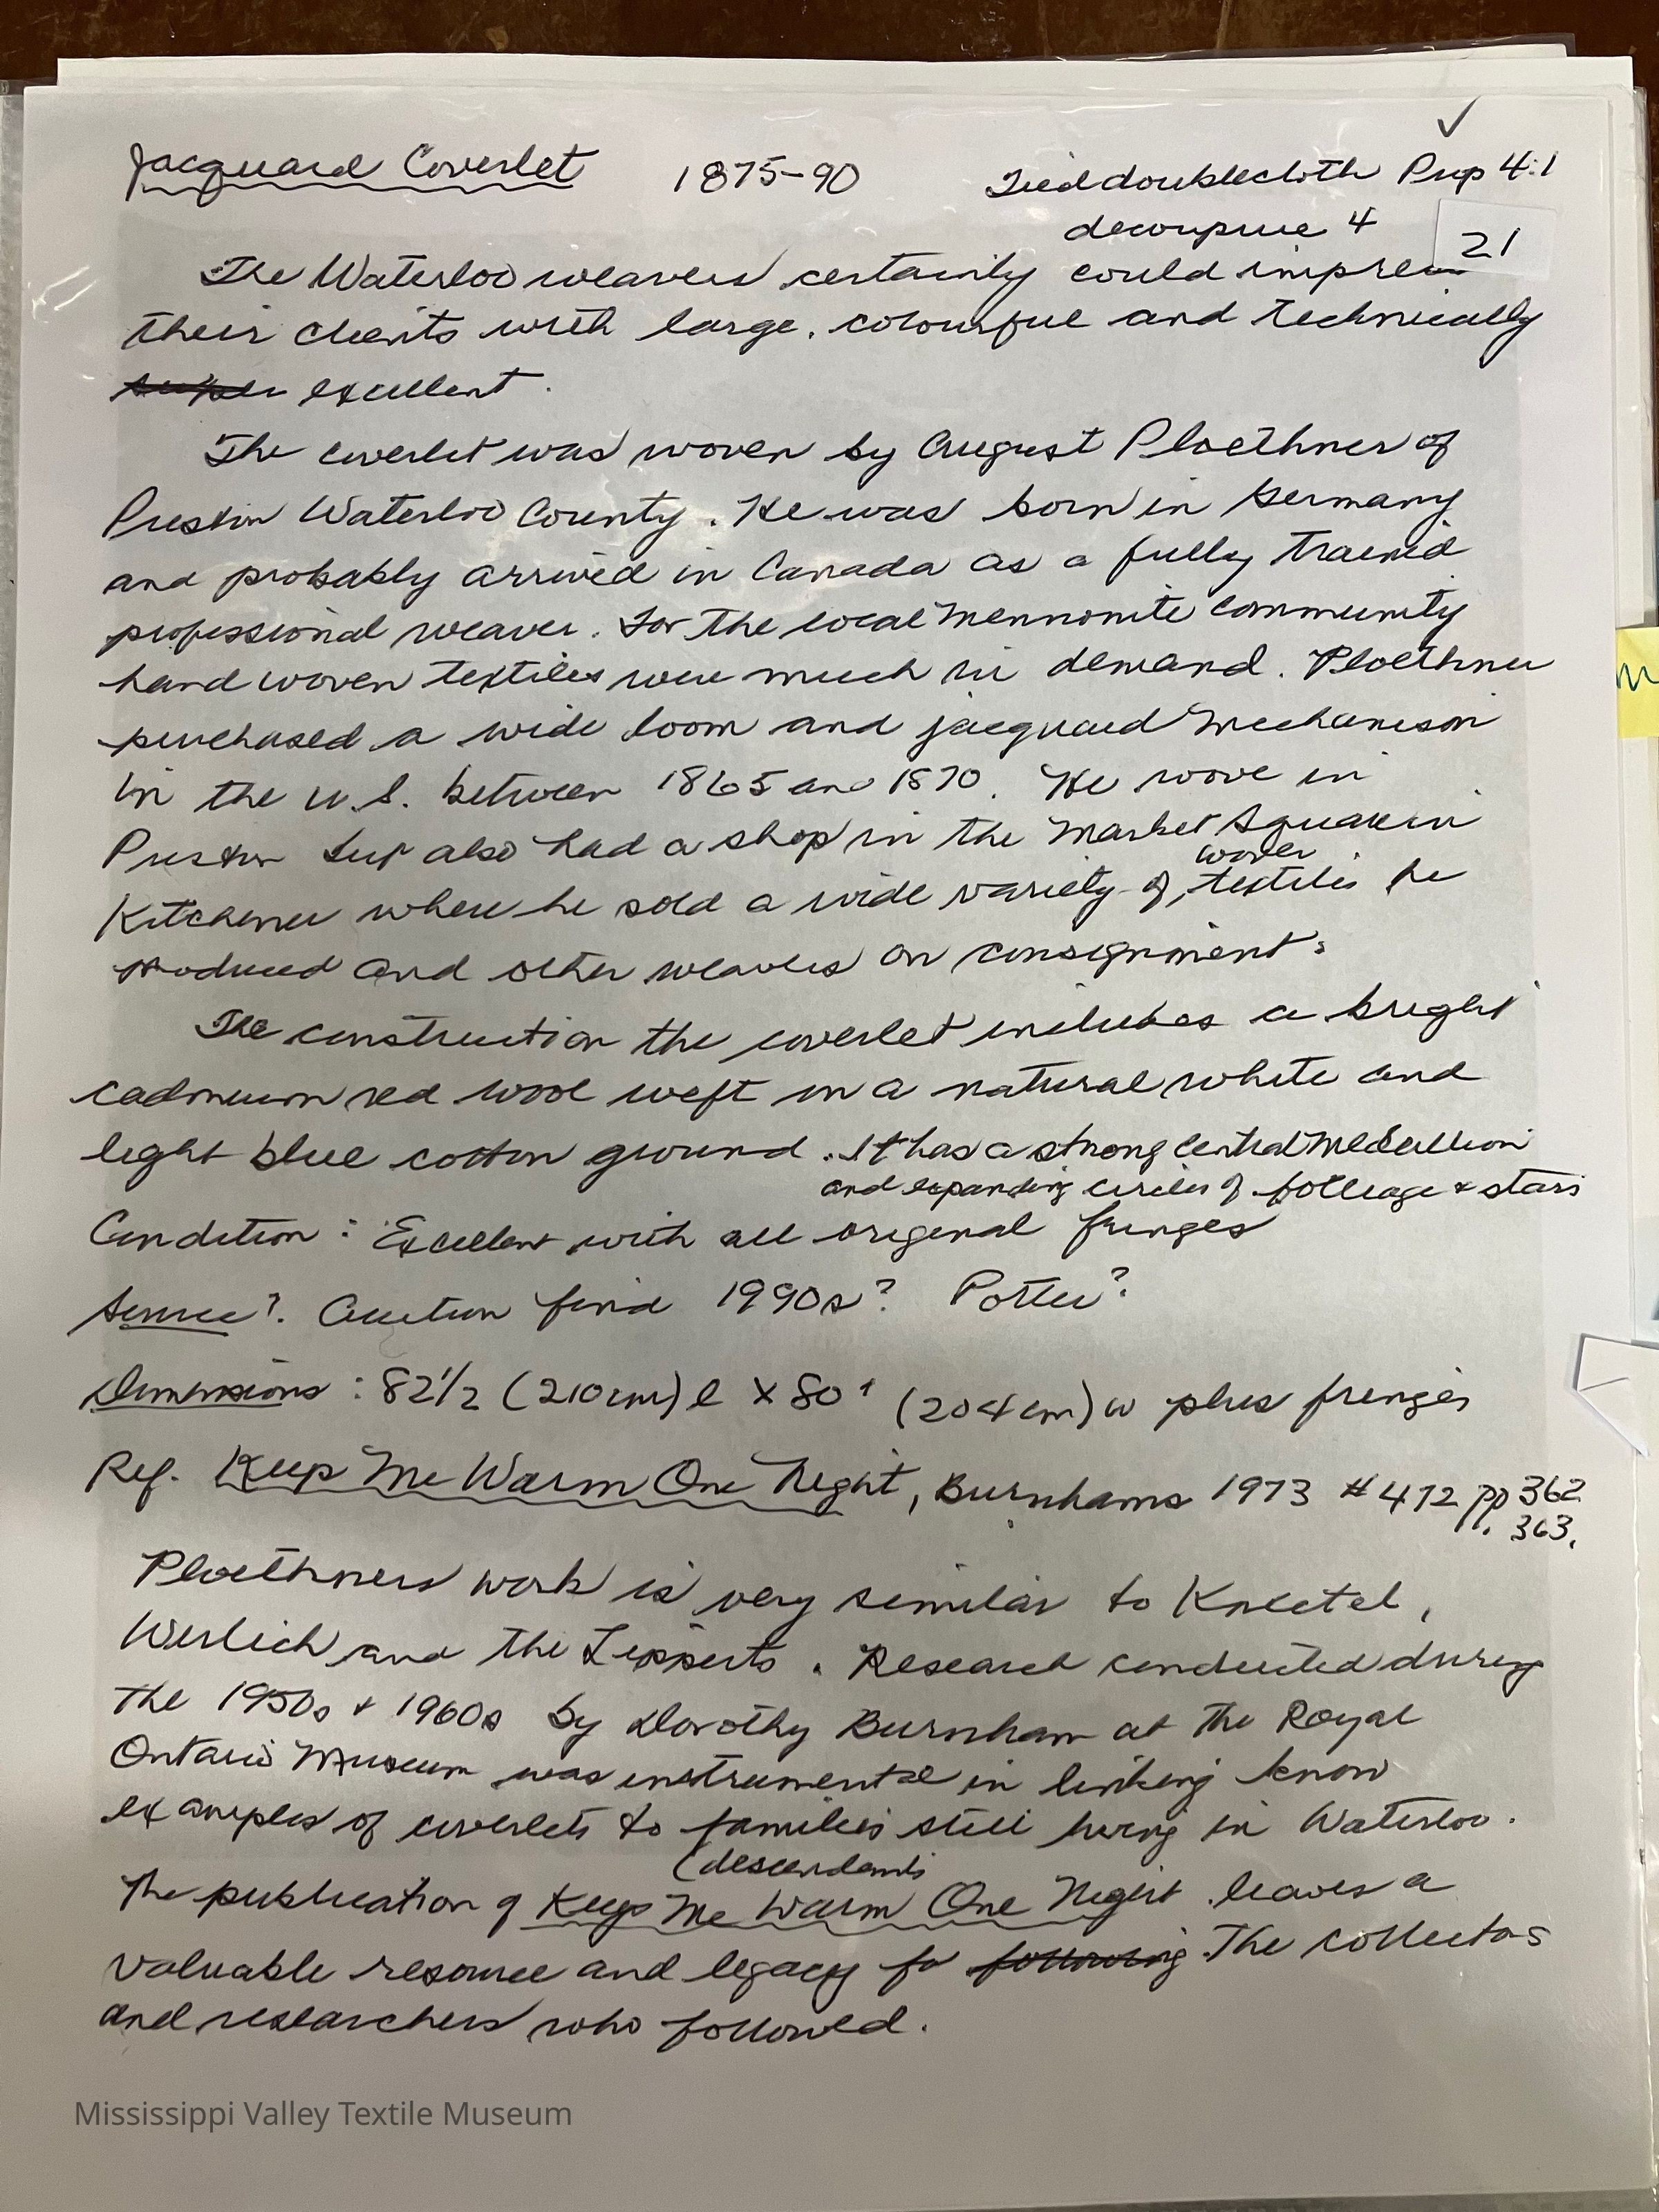 ✓
Jacquard Coverlet 1875-90 Tied doublecloth Prop 4:1
decoupure 4
21
The Waterloo weavers certainly could impress
their clients with large, colourful and technically
super excellent.
The coverlet was woven by August Ploethner of
Preston Waterloo County. He was born in Germany
and probably arrived in Canada as a fully trained
professional weaver. For the local Mennonite community
hand woven textiles were much in demand. Ploethner
purchased a wide loom and jacquard mechanism
in the U.S. between 1865 and 1870. He wove in
Preston but also had a shop in the Market Square in
woven
Kitchener where he sold a wide variety of textiles he
produced and other weavers on consignment.
The construction the coverlet includes a bright
cadmium red wool weft in a natural white and
light blue cotton ground. It has a strong central medallion
and expanding circles of folleage & stars
Condition: Excellent with all original fringes
Source?. Auction find 1990s? Potter?
Dimensions: 82 1/2 (210cm) l X 80" (204cm) w plus fringes
Ref. Keep Me Warm One Night, Burnhams 1973 #472 pp 362
363.
Ploethners work is very similar to Knectel,
Werlich and the Lipperts. Research conducted during
the 1950s & 1960s by Dorothy Burnham at the Royal
Ontario Museum was instrumental in linking know
examples of coverlets to families still living in Waterloo.
(descendants
The publication of Keep Me Warm One Night leaves a
valuable resource and legacy fo following The collectors
and researchers who followed.
Mississippi Valley Textile Museum